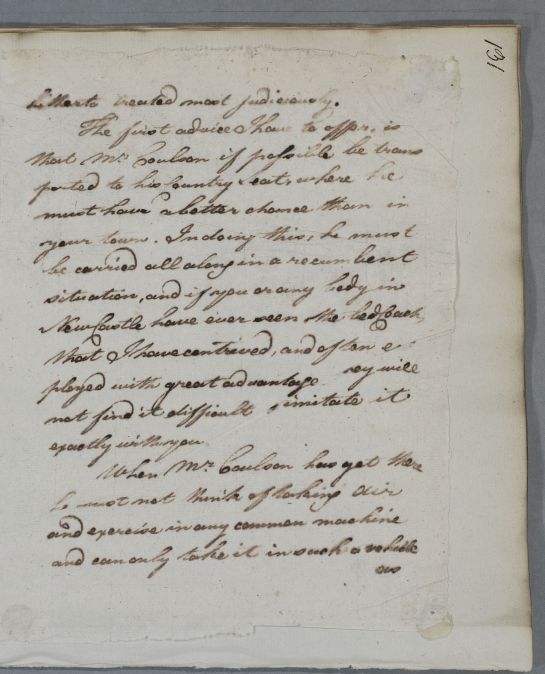 191
hitherto treated most judiciously.
The first advice I have to offer, is
that Mr Coulson if possible be trans
ported to his Country Seat, where he
must have a better chance than in
your town. In doing this, he must
be carried all along in a recumbent
situation, and if you or any body in
NewCastle have ever seen the bed Coach
that I have contrived, and often e
ployed with great advantage ey will
not find it difficult imitate it
exactly with you
When Mr Coulson has got there
he must not think of taking air
and exercise in any common machine
and can only take it in such a vehicle
as